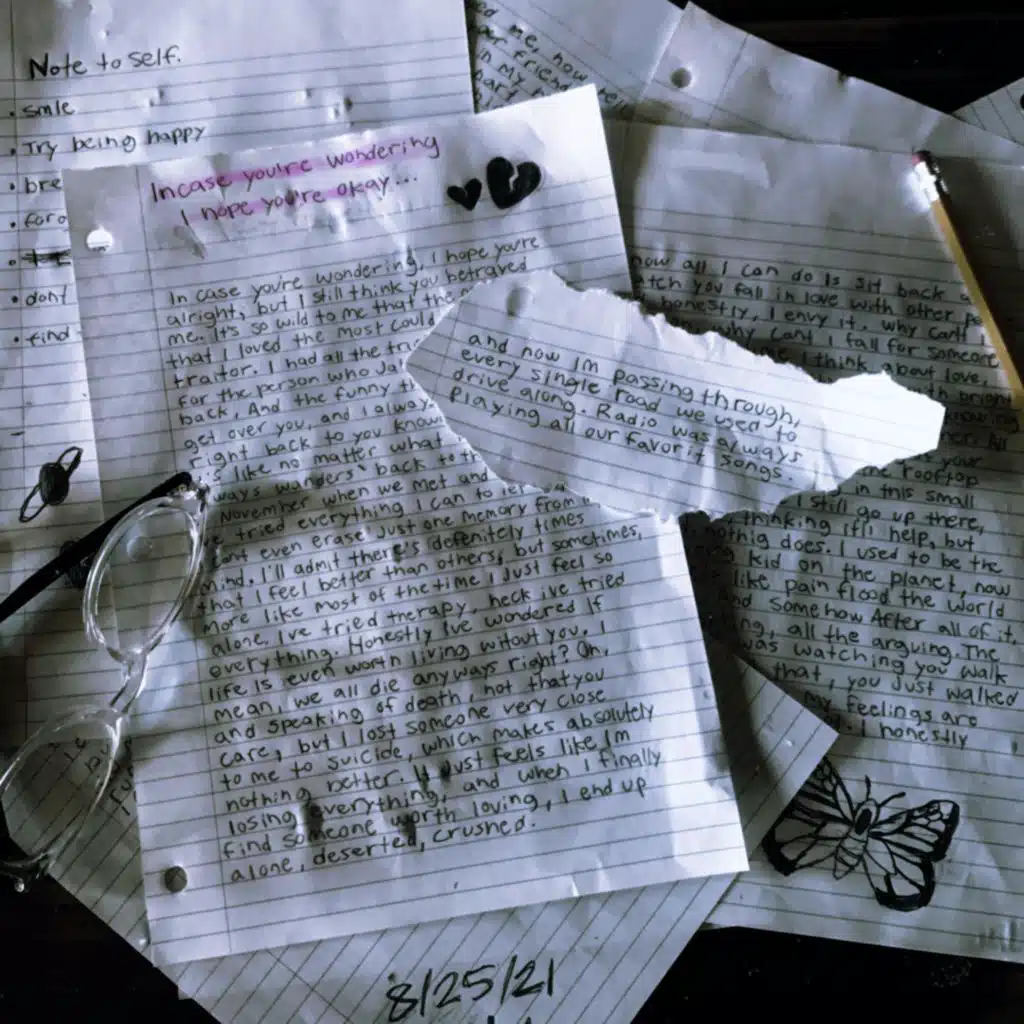 Note to self.
• smile
• Try being happy
• bre
• forg
•
• dont
• find
ed me, how
friends
in my
part
Incase you're wondering
I hope you're okay...
In case you're wondering, I hope you're
alright, but I still think you betrayed
me. It's so wild to me that the
that I loved the most could
traitor. I had all the tru
for the person who
back, And the funny th
get over you, and I always
right back to you know
like no matter what
ways wanders back to th
November when we met and
tried everything I can to
even erase just one memory from
mind. I'll admit there's defenitely times
that I feel better than others, but sometimes,
more like most of the time, I just feel so
alone, I've tried therapy, heck ive tried
everything. Honestly I've wondered if
life is even worth living without you. I
mean, we all die anyways right? Oh,
and speaking of death, not that you
care, but I lost someone very close
to me to suicide, which makes absolutely
nothing better. It just feels like Im
losing everything, and when I finally
find someone worth loving, I end up
alone, deserted, crushed.
and now Im passing through,
every single road we used to
drive along. Radio was always
Playing all our favorit songs.
now all I can do is sit back a
tch you fall in love with other pe
honestly, I envy it. why cant I
why cant I fall for someone
I think about love,
bright
your
rooftop
in this small
I still go up there,
thinking it'll help, but
nothig does. I used to be the
kid on the planet, now
like pain flood the world
nd somehow After all of it,
ng, all the arguing. The
was watching you walk
that, you just walked
my feelings are
I honestly
8/25/21